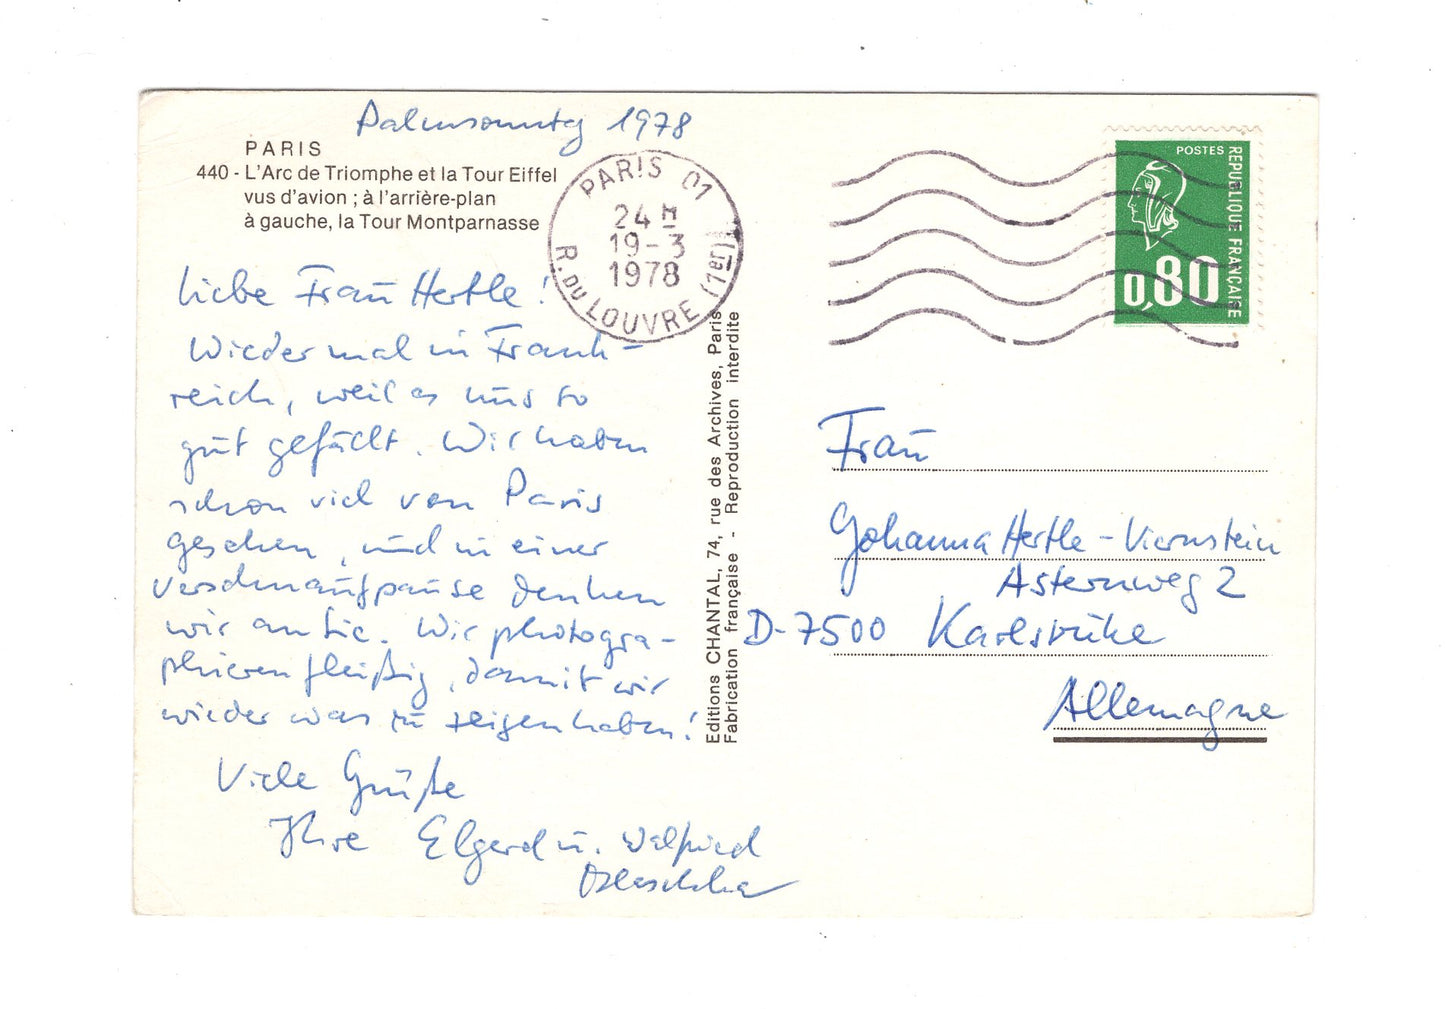 Palmsonntag 1978
PARIS
440 - L'Arc de Triomphe et la Tour Eiffel
vus d'avion ; à l'arrière-plan
à gauche, la Tour Montparnasse
PARIS 01
24 H
19-3
1978
R. DU LOUVRE (1er)
Liebe Frau Hertle!
Wieder mal in Frank-
reich, weil es uns so
gut gefällt. Wir haben
schon viel von Paris
gesehen, und in einer
Verschnaufpause denken
wir an Sie. Wir photogra-
phieren fleißig, damit wir
wieder was zu zeigen haben!
Viele Grüße
Ihre Elgerd u. Walfried
Editions CHANTAL, 74, rue des Archives, Paris
Fabrication française - Reproduction interdite
POSTES
REPUBLIQUE FRANÇAISE
0,80
Frau
Johanna Hertle-Viernstein
Asternweg 2
D-7500 Karlsruhe
Allemagne